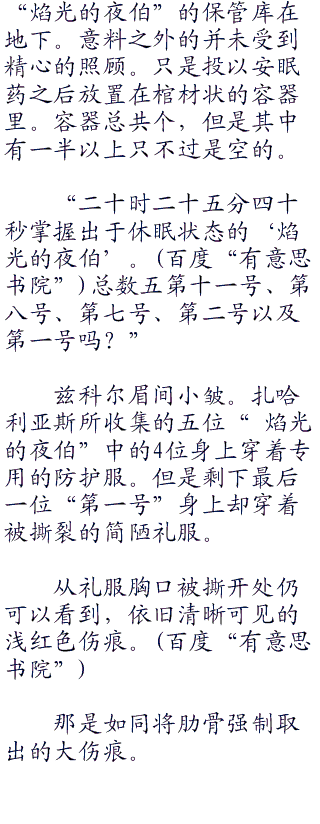 “焰光的夜伯”的保管库在
地下。意料之外的并未受到
精心的照顾。只是投以安眠
药之后放置在棺材状的容器
里。容器总共个，但是其中
有一半以上只不过是空的。
“二十时二十五分四十
秒掌握出于休眠状态的‘焰
光的夜伯’。(百度“有意思
书院”)总数五第十一号、第
八号、第七号、第二号以及
第一号吗？”
兹科尔眉间小皱。扎哈
利亚斯所收集的五位“ 焰光
的夜伯”中的4位身上穿着专
用的防护服。但是剩下最后
一位“第一号”身上却穿着
被撕裂的简陋礼服。
从礼服胸口被撕开处仍
可以看到，依旧清晰可见的
浅红色伤痕。(百度“有意思
书院”)
那是如同将肋骨强制取
出的大伤痕。